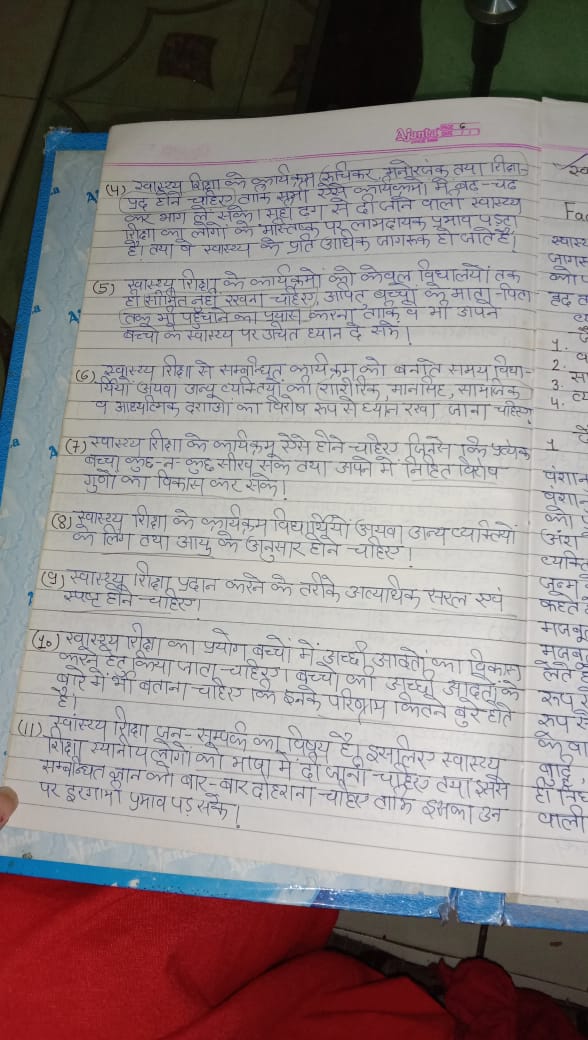 Ajanta
6
(4) स्वास्थ्य शिक्षा के कार्यक्रम रूचिकर, मनोरंजक तथा शिक्षा-
प्रद होने चाहिए ताकि सभी ऐसे कार्यक्रमों में बढ़-चढ़
कर भाग ले सकें। सही ढंग से दी जाने वाली स्वास्थ्य
शिक्षा का लोगों के मस्तिष्क पर लाभदायक प्रभाव पड़ता
है। तथा वे स्वास्थ्य के प्रति अधिक जागरूक हो जाते हैं।
(5) स्वास्थ्य शिक्षा के कार्यक्रमों को केवल विद्यालयों तक
ही सीमित नहीं रखना चाहिए, अपितु बच्चों के माता-पिता
तक भी पहुँचाने का प्रयास करना ताकि वे भी अपने
बच्चों के स्वास्थ्य पर उचित ध्यान दे सके।
(6) स्वास्थ्य शिक्षा से सम्बन्धित कार्यक्रम को बनाते समय विद्या-
र्थियों अथवा अन्य व्यक्तियों की शारीरिक, मानसिक, सामाजिक
व आध्यात्मिक दशाओं का विशेष रूप से ध्यान रखा जाना चाहिए
(7) स्वास्थ्य शिक्षा के कार्यक्रम ऐसे होने चाहिए जिनसे कि प्रत्येक
बच्चा कुछ-न-कुछ सीख सके तथा अपने में निहित विशेष
गुणों का विकास कर सके।
(8) स्वास्थ्य शिक्षा के कार्यक्रम विद्यार्थियों अथवा अन्य व्यक्तियों
के लिंग तथा आयु के अनुसार होने चाहिए।
(9) स्वास्थ्य शिक्षा प्रदान करने के तरीके अत्याधिक सरल एवं
स्पष्ट होने चाहिए।
(10) स्वास्थ्य शिक्षा का प्रयोग बच्चों में अच्छी आदतों का विकास
करने हेतु किया जाना चाहिए। बच्चों की अच्छी आदतों के
बारे में भी बताना चाहिए कि इनके परिणाम कितने बुरे होते
है।
(11) स्वास्थ्य शिक्षा जन-सम्पर्क का विषय है। इसलिए स्वास्थ्य
शिक्षा स्थानीय लोगों को भाषा में दी जानी चाहिए तथा इससे
सम्बन्धित ज्ञान को बार-बार दोहराना चाहिए ताकि इसका उन
पर दूरगामी प्रभाव पड़ सके।
1.
2.
3.
4.
1